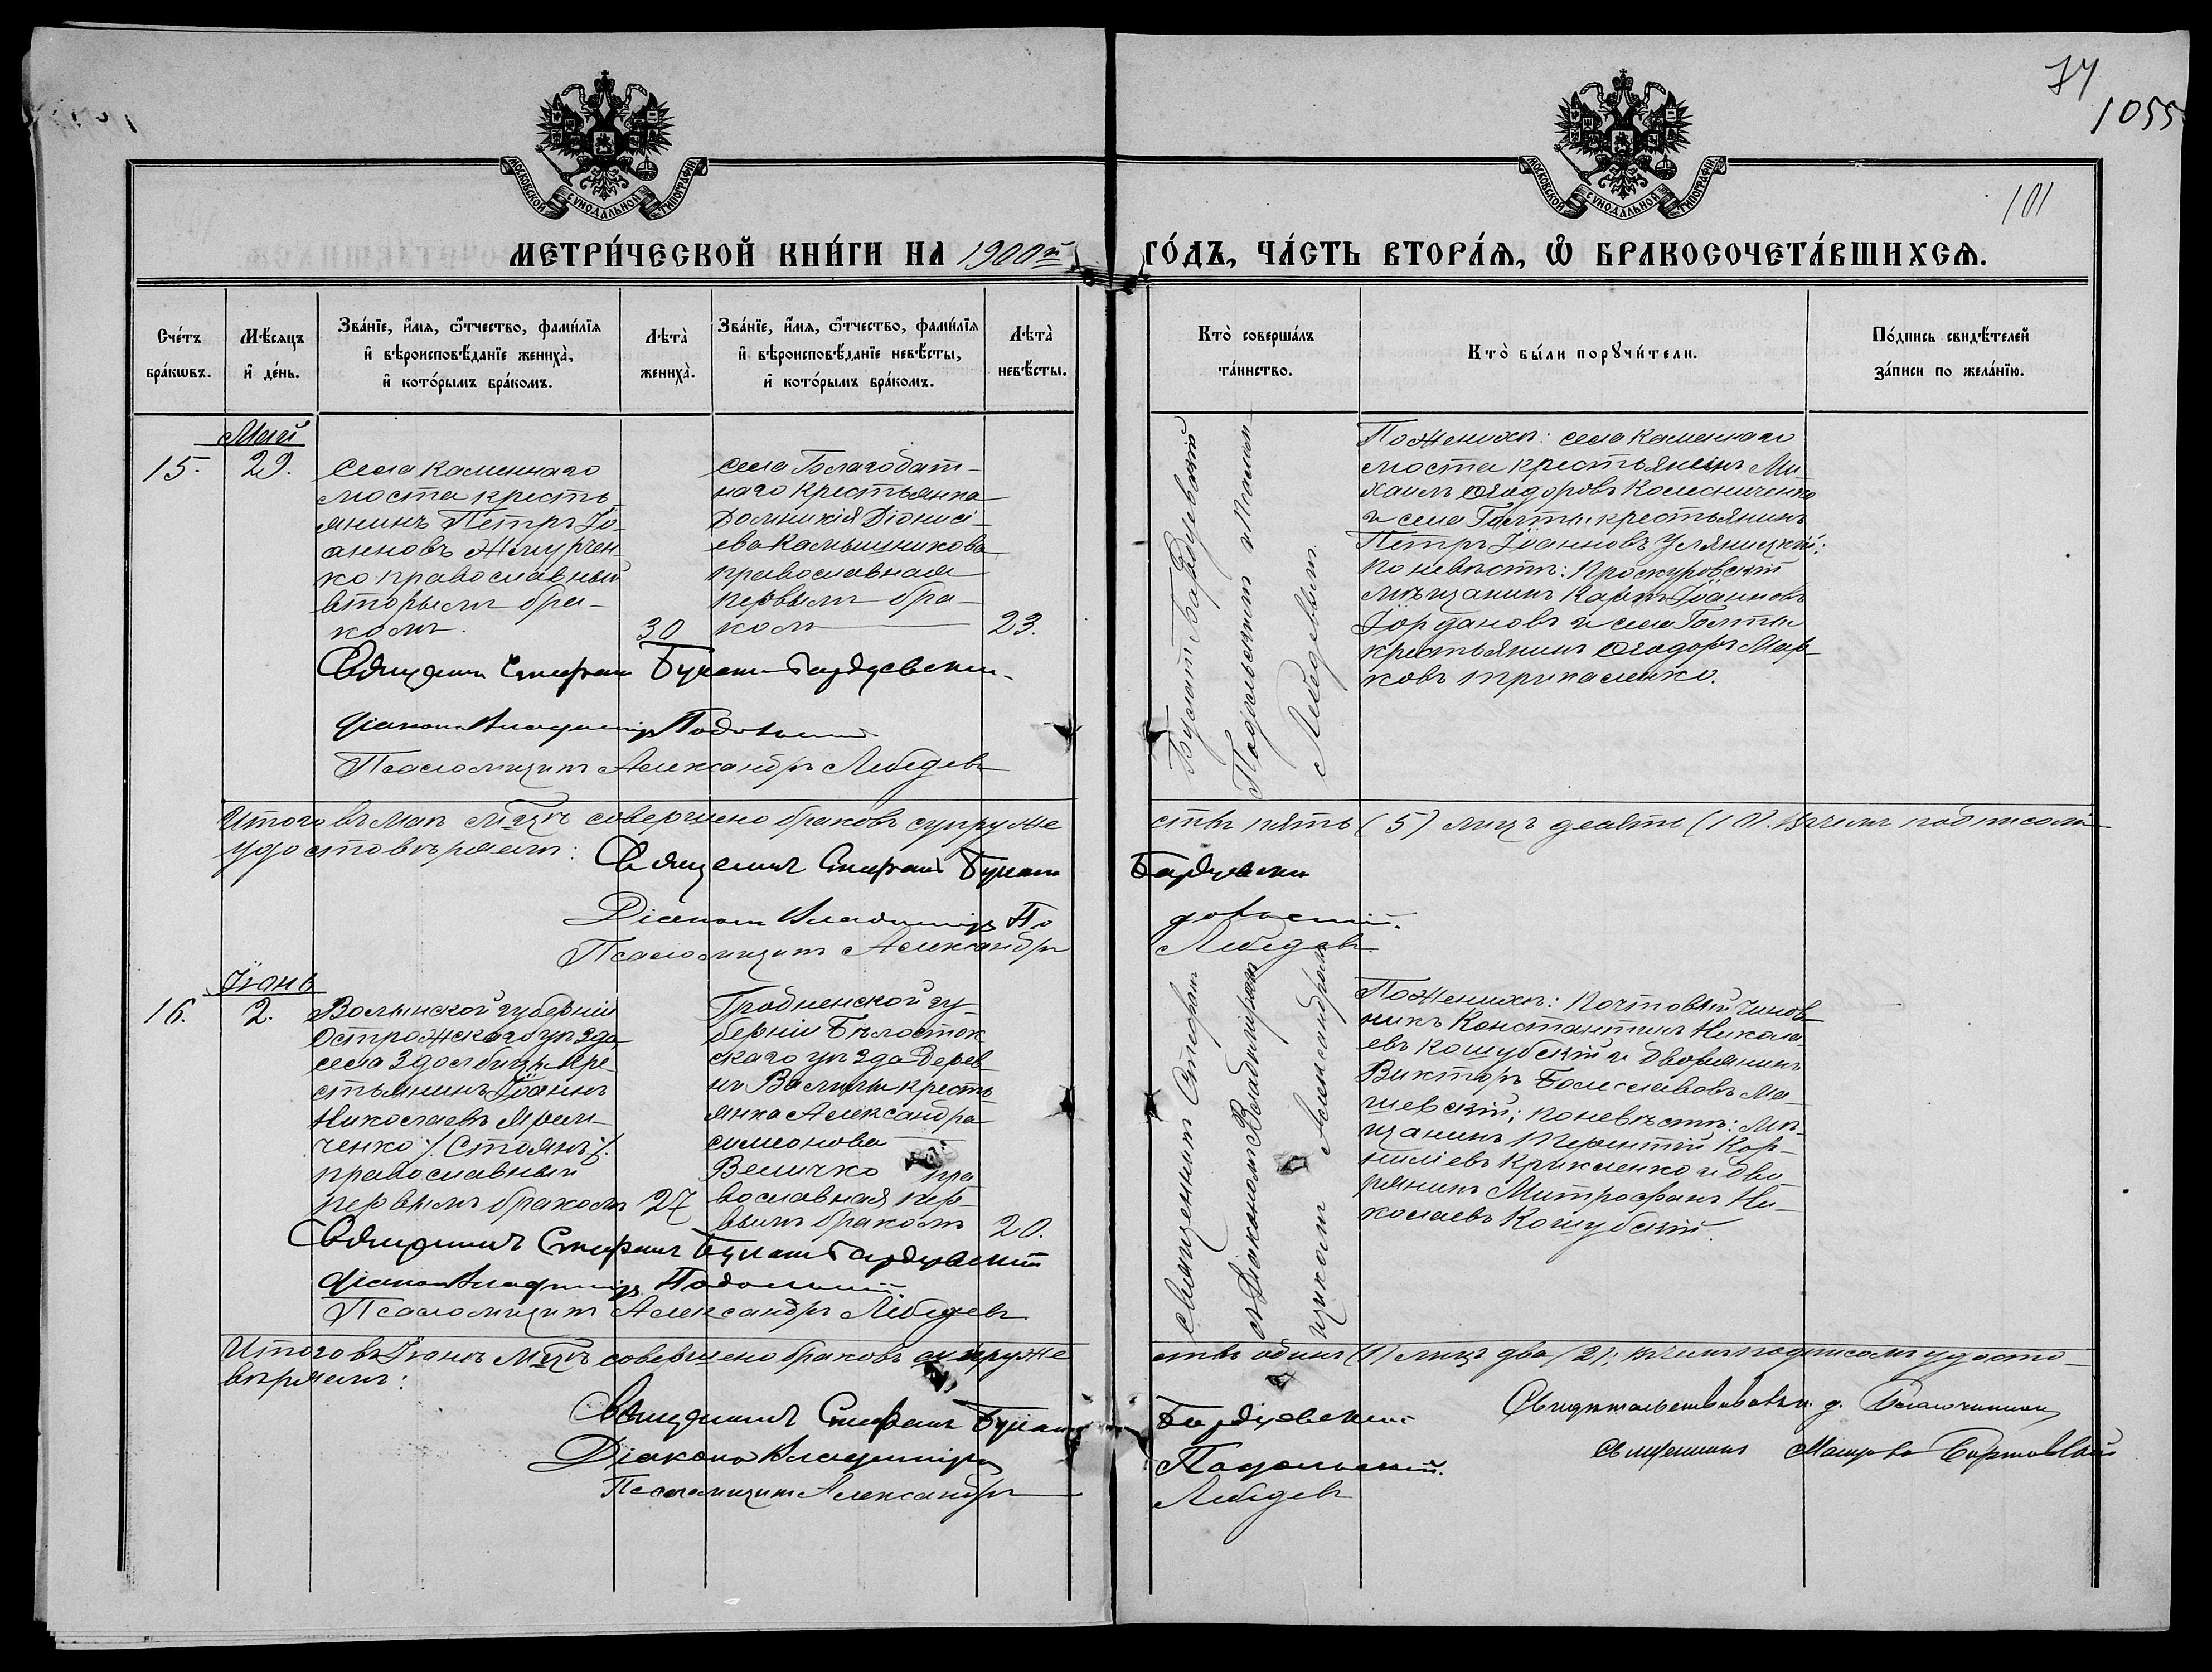 74
1055
101
МОСКОВСКОЙ СѴНОДАЛЬНОЙ ТИПОГРАФІИ
МОСКОВСКОЙ СѴНОДАЛЬНОЙ ТИПОГРАФІИ
МЕТРИ́ЧЕСКОЙ КНИ́ГИ НА 1900й
ГО́ДЪ, ЧА́СТЬ ВТОРА́Ѧ, Ѿ БРАКОСОЧЕТА́ВШИХСѦ.
Сче́тъ
бра́кѡвъ.
Мѣ́сяцъ
и҆ де́нь.
Зва́нїе, и҆́мѧ, ѻ҆́тчество, фами́лїѧ
и҆ вѣроисповѣ́данїе жениха̀,
и҆ кото́рымъ бра́комъ.
Лѣта̀
жениха̀.
Зва́нїе, и҆́мѧ, ѻ҆́тчество, фами́лїѧ
и҆ вѣроисповѣ́данїе невѣ́сты,
и҆ кото́рымъ бра́комъ.
Лѣта̀
невѣ́сты.
Кто̀ соверша́лъ
та́инство.
Кто̀ бы́ли порꙋчи́тели.
По́дпись свидѣ́телей
за́писи по жела́нїю.
Май
15.
29.
Села Каменнаго
моста кресть
янинъ Петръ Іо-
анновъ Жмурчен
ко православный
вторымъ бра-
комъ.
30
села Благодат-
наго крестьянка
Домникія Діонисі-
ева Камышникова
православная
первымъ бра-
комъ
23.
Булатъ Бардусевскій
Подольскій
Лебедевым
По женихѣ: села Каменнаго
моста крестьянинъ Ми
хаилъ Ѳеодоровъ Колесниченко
и села Голты крестьянинъ
Петръ Іоанновъ Уляницкій;
по невѣстѣ: Проскуровскій
мѣщанинъ Карпъ Іоанновъ
Іордановъ и села Голты
крестьянинъ Ѳеодоръ Мар
ковъ
Священникъ Стефанъ Булатъ-Бардусевскій
Діаконъ Владиміръ Подольскій
Псаломщикъ Александръ Лебедевъ
Итого въ маѣ мѣцѣ совершено браковъ супруже
ствъ пять (5) лицъ десять (10). В чемъ подписомъ
удостовѣряемъ:
Священникъ Стефанъ Булатъ
Бардусевскій
Діаконъ Владиміръ По
дольскій.
Псаломщикъ Александръ
Лебедевъ
Іюнь
16.
2.
Волынской губерніи
Острожскаго уѣзда
села Здолбицы кре
стьянинъ Іоаннъ
Николаевъ
ченко /. Стоянъ /.
православный
первымъ бракомъ
27
Гродненской гу-
берніи Бѣлосток
скаго уѣзда дерев
ни Валилы кресть
янка Александра
Симеонова
Величко пра
вославная пер-
вымъ бракомъ
20.
Священникъ Стефанъ
съ Діакономъ Владиміромъ
щикомъ Александромъ
По женихѣ: почтовый чинов
никъ Константинъ Никола
евъ Кошубскій и дворянинъ
Викторъ Болеславовъ Ма-
шевскій; по невѣстѣ: мѣ-
щанинъ Терентій Кор-
нилиевъ Крикленко и дво
рянинъ Митрофанъ Ни-
колаевъ Кошубскій.
Священникъ Стефанъ Булатъ Бардусевскій
Діаконъ Владиміръ Подольскій.
Псаломщикъ Александръ Лебедевъ
Итого въ Іюнѣ мѣцѣ совершено браковъ супруже
ствъ одинъ (1) лицъ два (2); в чемъ подписомъ удосто-
вѣряемъ:
Священникъ Стефанъ Булатъ
Бардусевскій
Діаконъ Владиміръ
Подольскій.
Псаломщикъ Александръ
Лебедевъ
Свидѣтельствовалъ: д. Благочинный
Священникъ